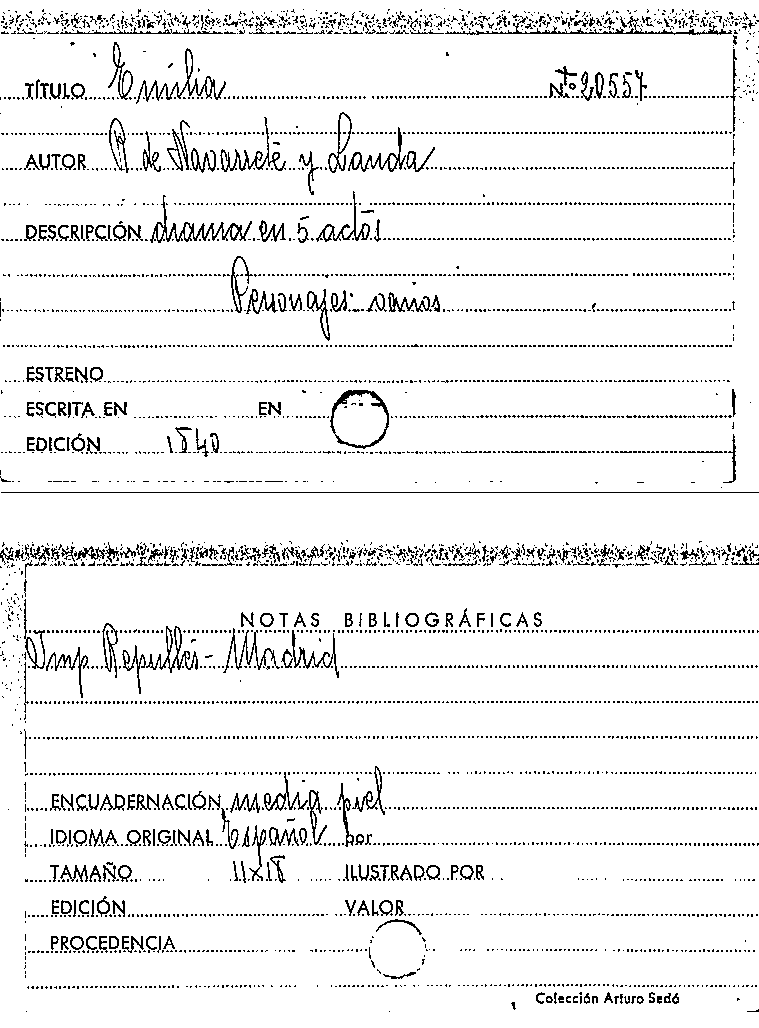 TÍTULO Emilia Nº 20557
AUTOR R de Navarrete y Landa
DESCRIPCIÓN drama en 5 actos
Personajes: varios
ESTRENO
ESCRITA EN EN
EDICIÓN 1840
NOTAS BIBLIOGRÁFICAS
Imp Repullés - Madrid
ENCUADERNACIÓN media piel
IDIOMA ORIGINAL Español por
TAMAÑO 11x18 ILUSTRADO POR
EDICIÓN VALOR
PROCEDENCIA
Colección Arturo Sedó